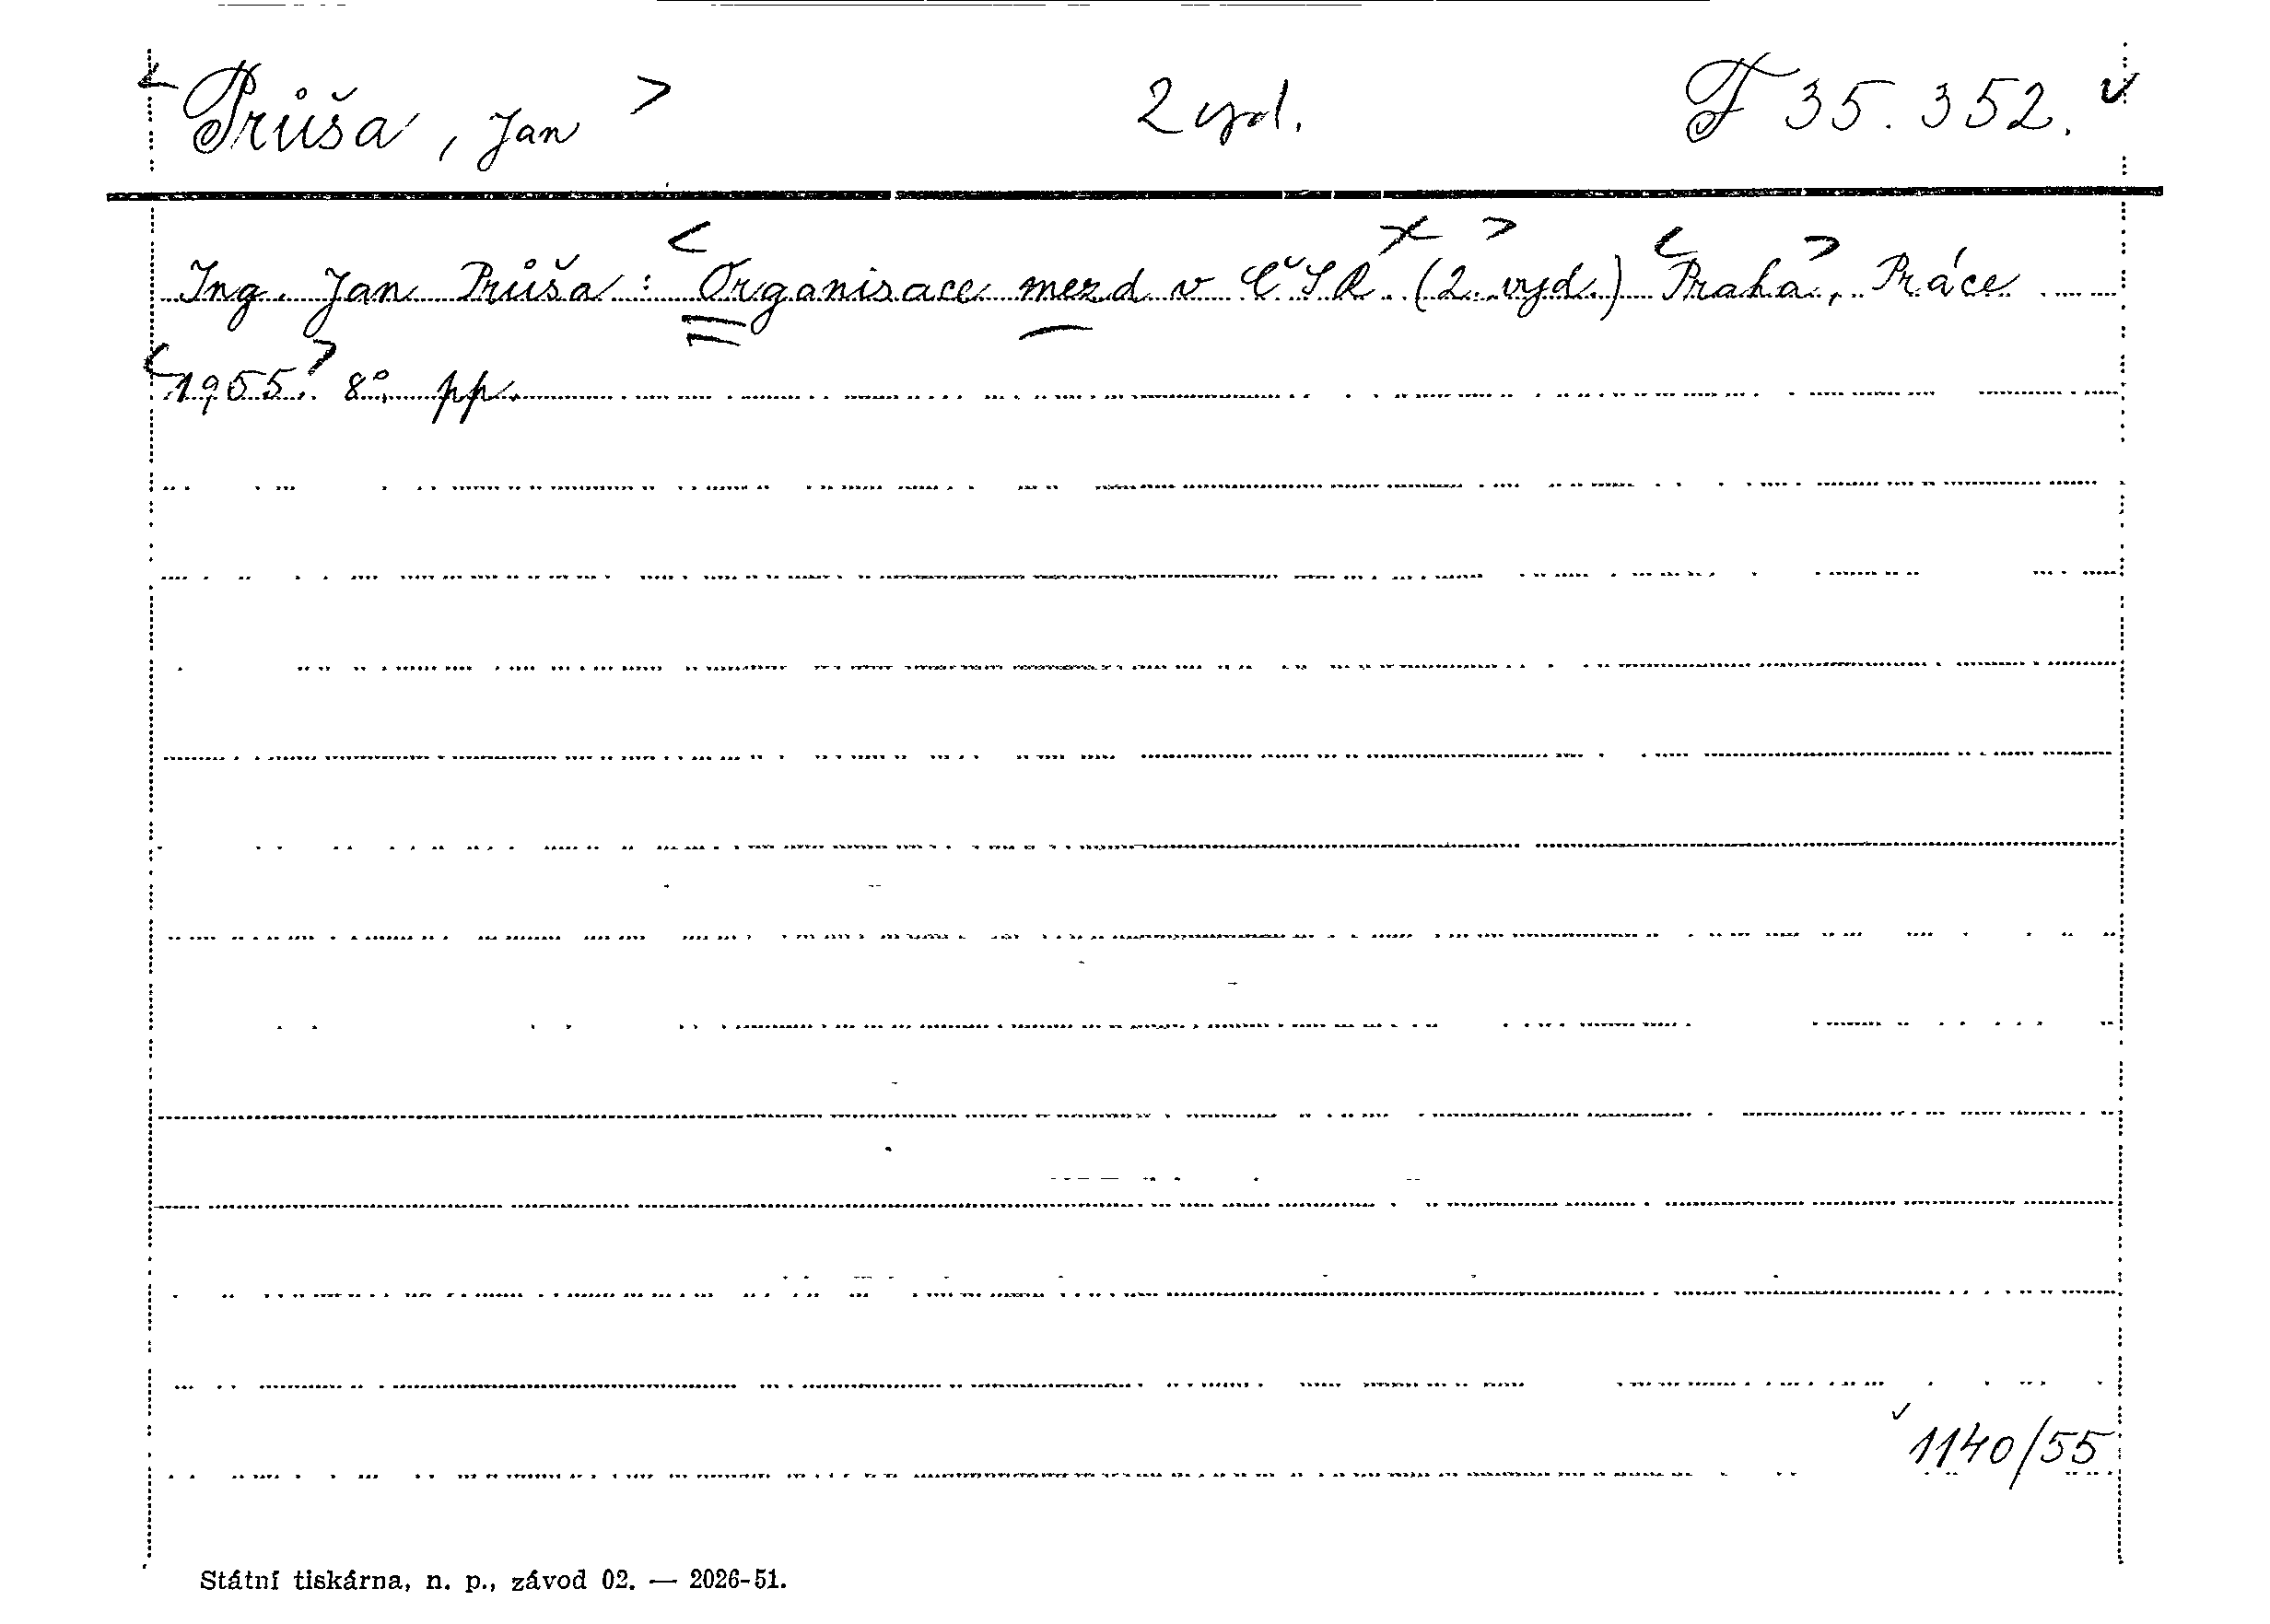 < Průša, Jan > 2 vyd. F 35.352. ✓
Ing. Jan Průša: < Organisace mezd v ČSR. × > (2. vyd.) < Praha >, Práce
< 1955. > 8°, pp.
✓ 1140/55
Státní tiskárna, n. p., závod 02. — 2026-51.